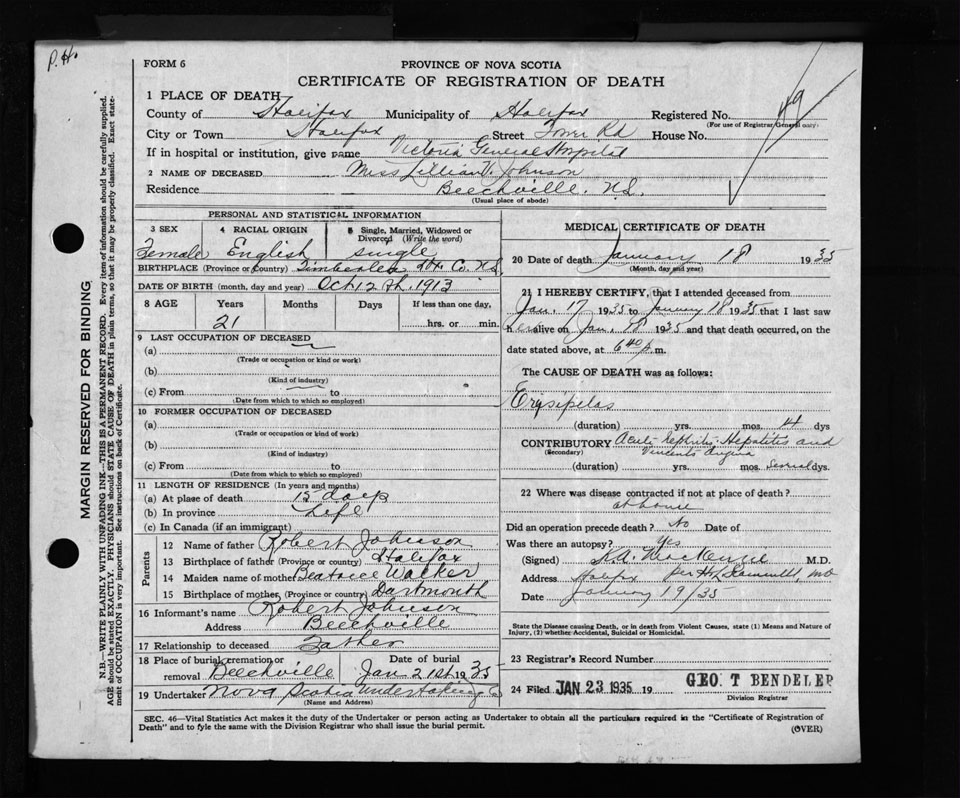 P.H.
FORM 6
PROVINCE OF NOVA SCOTIA
CERTIFICATE OF REGISTRATION OF DEATH
1 PLACE OF DEATH
County of Halifax Municipality of Halifax Registered No. 49
(For use of Registrar General only)
City or Town Halifax Street Tower Rd House No.
If in hospital or institution, give name Victoria General Hospital
2 NAME OF DECEASED Miss Lillian V. Johnson
Residence Beechville. N.S.
(Usual place of abode)
PERSONAL AND STATISTICAL INFORMATION
3 SEX 4 RACIAL ORIGIN 5 Single, Married, Widowed or Divorced (Write the word)
Female English single
BIRTHPLACE (Province or Country) Timberlea Hfx. Co. N.S.
DATE OF BIRTH (month, day and year) Oct 12th, 1913
8 AGE Years Months Days If less than one day,
21 hrs. or min.
9 LAST OCCUPATION OF DECEASED
(a)
(Trade or occupation or kind of work)
(b)
(Kind of industry)
(c) From to
(Date from which to which so employed)
10 FORMER OCCUPATION OF DECEASED
(a)
(Trade or occupation or kind of work)
(b)
(Kind of industry)
(c) From to
(Date from which to which so employed)
11 LENGTH OF RESIDENCE (In years and months)
(a) At place of death 15 days
(b) In province Life
(c) In Canada (if an immigrant)
Parents
12 Name of father Robert Johnson
13 Birthplace of father (Province or country) Halifax
14 Maiden name of mother Beatrice Walker
15 Birthplace of mother (Province or country) Dartmouth
16 Informant's name Robert Johnson
Address Beechville
17 Relationship to deceased Father
18 Place of burial, cremation or removal Beechville Date of burial Jan 21st 1935
19 Undertaker Nova Scotia Undertaking Co
(Name and Address)
MEDICAL CERTIFICATE OF DEATH
20 Date of death January 18 1935
(Month, day and year)
21 I HEREBY CERTIFY, that I attended deceased from
Jan. 17 1935 to January 18 1935 that I last saw
her alive on Jan. 18 1935 and that death occurred, on the
date stated above, at 6 40 p.m.
The CAUSE OF DEATH was as follows:
Erysipelas
(duration) yrs. mos. 4 dys
CONTRIBUTORY Acute Nephritis. Hepatitis and
(Secondary) Vincents Angina
(duration) yrs. mos. Several dys.
22 Where was disease contracted if not at place of death?
at home
Did an operation precede death? No Date of
Was there an autopsy? Yes
(Signed) K.A. MacKenzie M.D.
Address Halifax per H. MD
Date January 19/35
State the Disease causing Death, or in death from Violent Causes, state (1) Means and Nature of
Injury, (2) whether Accidental, Suicidal or Homicidal.
23 Registrar's Record Number
24 Filed JAN 23 1935 19 GEO. T BENDELER
Division Registrar
SEC. 46—Vital Statistics Act makes it the duty of the Undertaker or person acting as Undertaker to obtain all the particulars required in the "Certificate of Registration of
Death" and to fyle the same with the Division Registrar who shall issue the burial permit.
(OVER)
MARGIN RESERVED FOR BINDING
N.B.—WRITE PLAINLY WITH UNFADING INK—THIS IS A PERMANENT RECORD. Every item of information should be carefully supplied.
AGE should be stated EXACTLY. PHYSICIANS should STATE CAUSE OF DEATH in plain terms, so that it may be properly classified. Exact state-
ment of OCCUPATION is very important. See instructions on back of Certificate.